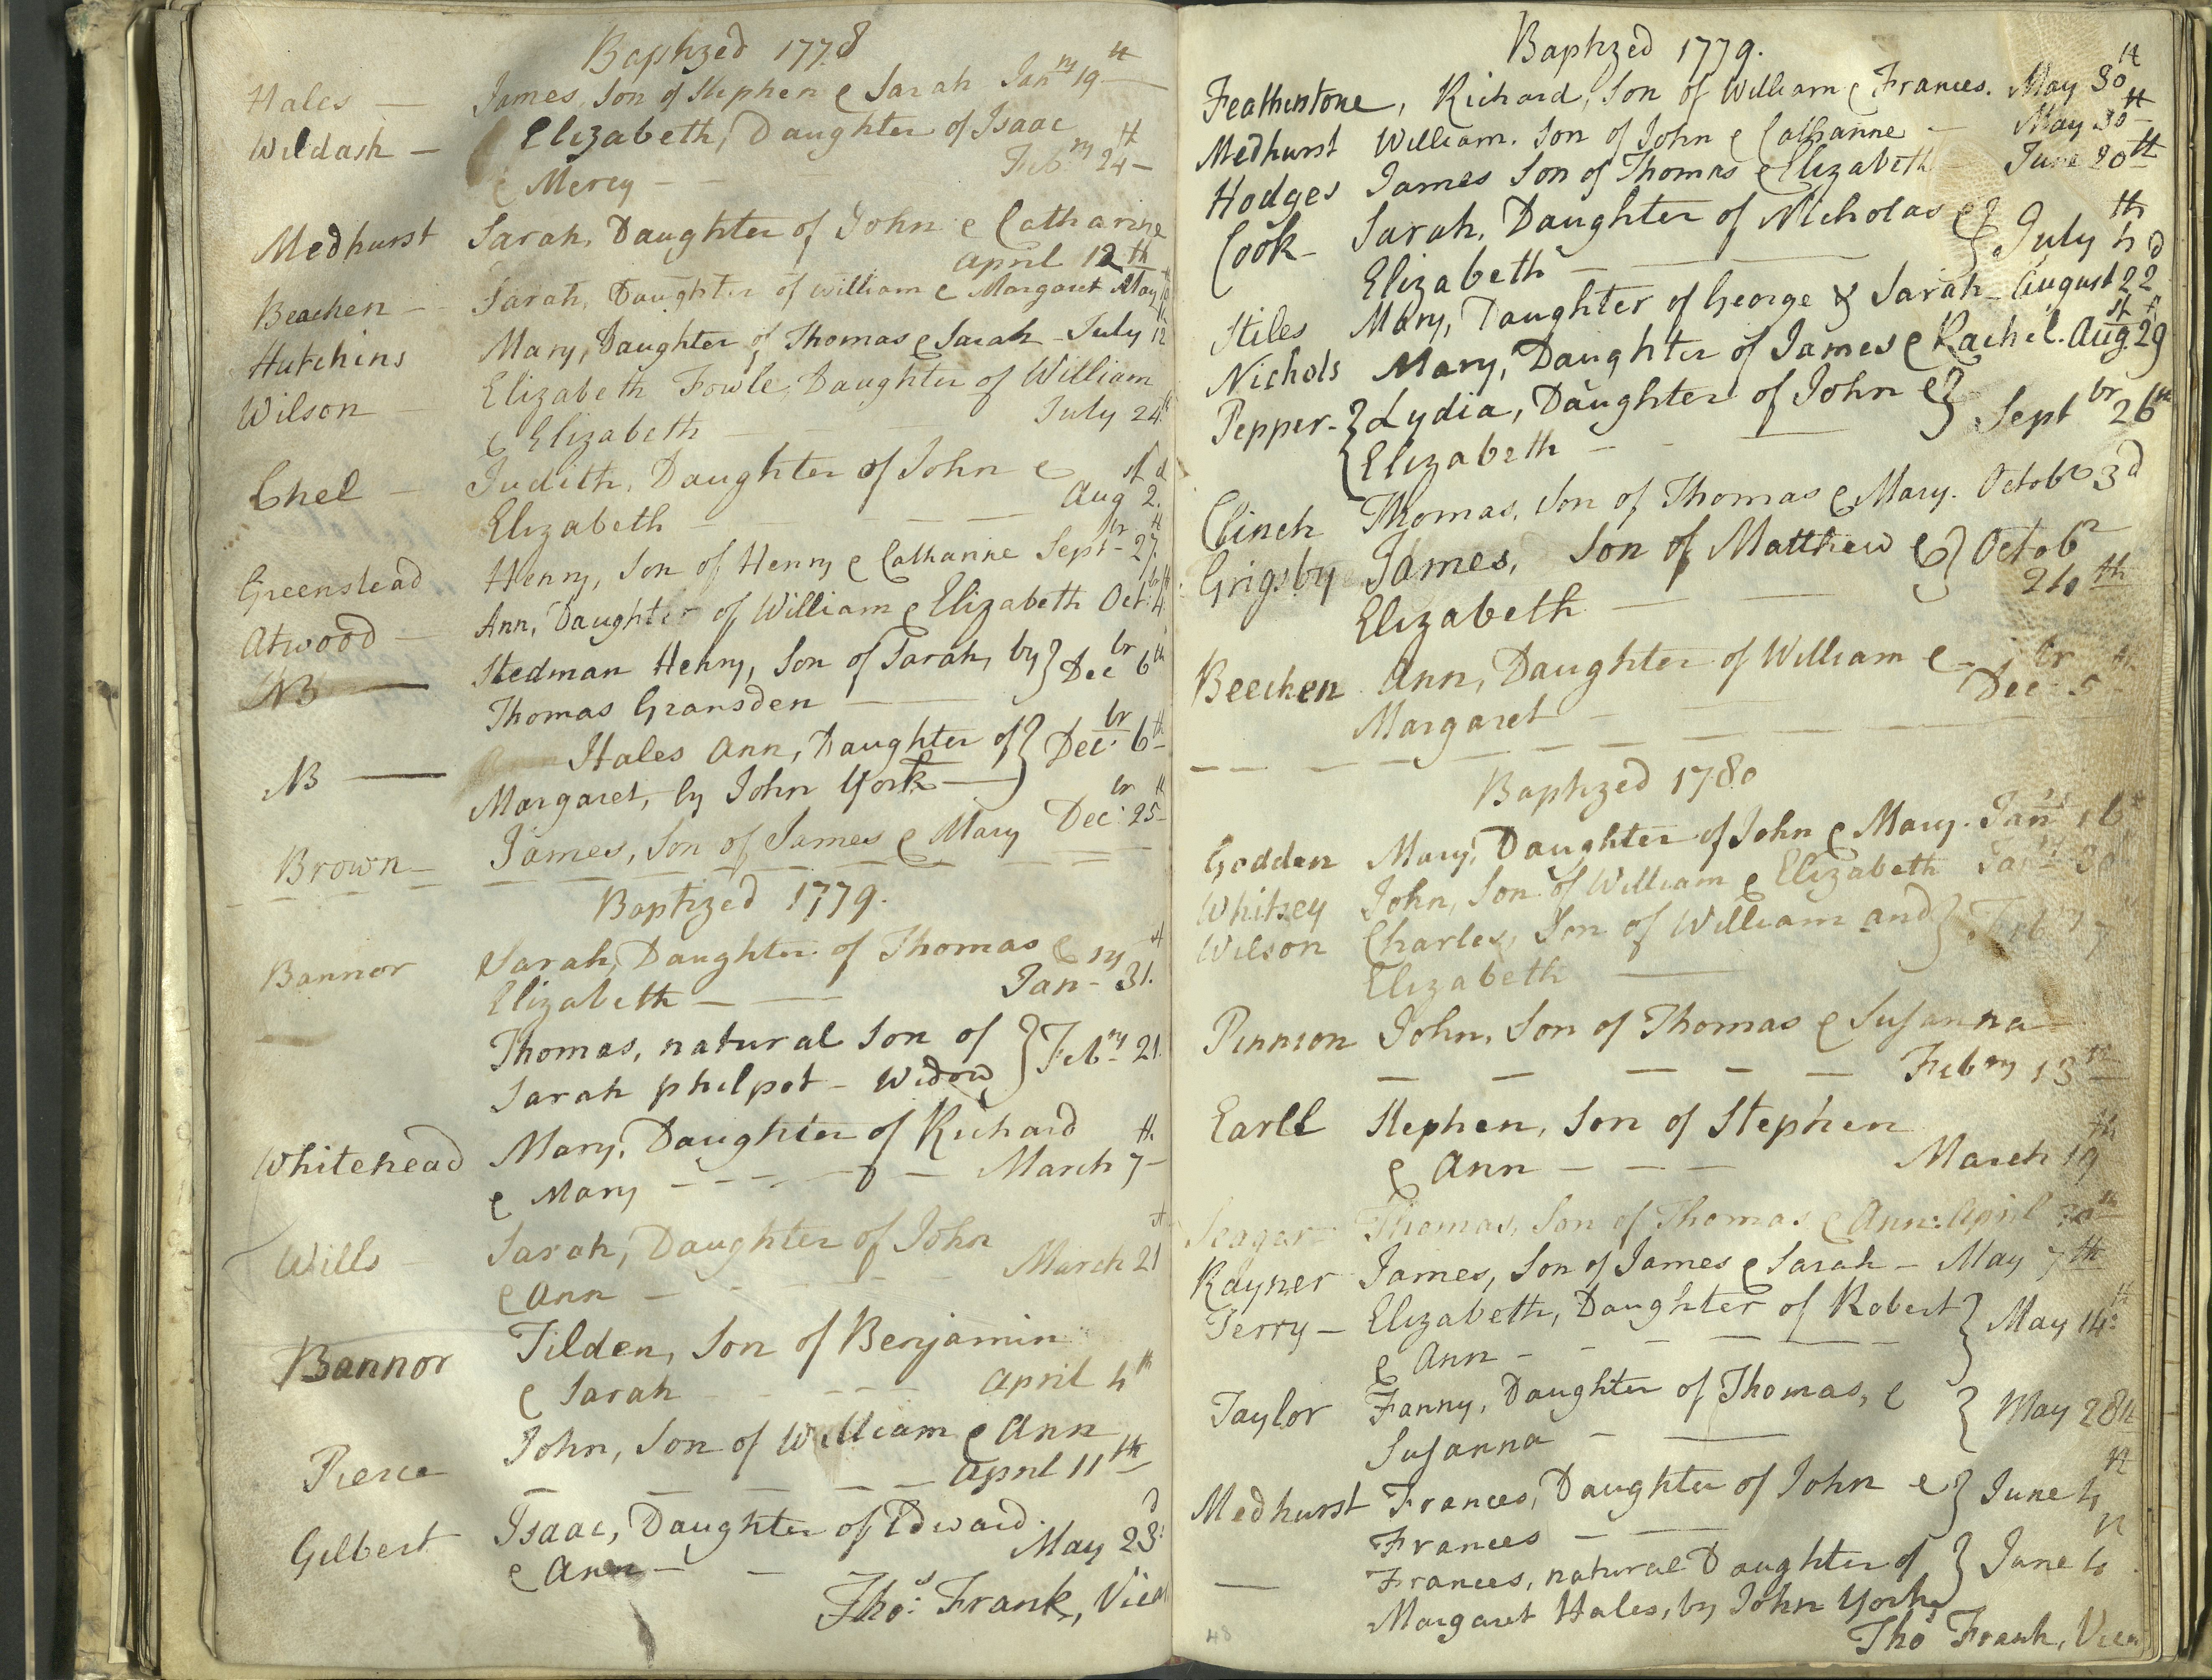 Baptized 1778
Hales — James, Son of Stephen & Sarah Janry 19th
Wildash — Elizabeth, Daughter of Isaac
& Mercy — — Febry 24th
Medhurst Sarah, Daughter of John & Catharine
April 12th
Beachen — Sarah, Daughter of William & Margaret May
Hutchins Mary, Daughter of Thomas & Sarah - July 12
Wilson — Elizabeth Fowle, Daughter of William
& Elizabeth — July 24th
Chel — Judith, Daughter of John &
Elizabeth — — Augst 2d
Greenstead Henry, Son of Henry & Catharine Septbr 27th
Atwood — Ann, Daughter of William & Elizabeth Octbr 4th
NB — Stedman Henry, Son of Sarah, by } Decbr 6th
Thomas Gransden —
NB — Hales Ann, Daughter of } Decbr 6th
Margaret, by John York —
Brown — James, Son of James & Mary Decbr 25th
Baptized 1779.
Bannor Sarah, Daughter of Thomas &
Elizabeth — — Janry 31st
Thomas, natural Son of } Febry 21
Sarah philpot - Widow
Whitehead Mary, Daughter of Richard
& Mary — — — March 7th
Wills Sarah, Daughter of John
& Ann — — March 21st
Bannor Tilden, Son of Benjamin
& Sarah — — April 4th
Pierce John, Son of William & Ann
— — — April 11th
Gilbert Isaac, Daughter of Edward
& Ann — — May 23d
Thos Frank, Vicar
Baptized 1779.
Featherstone, Richard, Son of William & Frances. May 30th
Medhurst William. Son of John & Catharine — May 30th
Hodges James Son of Thomas & Elizabeth June 20th
Cook - Sarah, Daughter of Nicholas & } July 4th
Elizabeth — —
Stiles Mary, Daughter of George & Sarah - August 22d
Nichols Mary, Daughter of James & Rachel. Augst 29th
Pepper - { Lydia, Daughter of John & } Septbr 26th
Elizabeth — —
Clinch Thomas, Son of Thomas & Mary. Octobr 3d
Grigsby James, Son of Matthew & } Octobr
Elizabeth — — 24th
Beechen Ann, Daughter of William & —
Margaret — — Decbr 5th
Baptized 1780
Godden Mary, Daughter of John & Mary. Janry 16th
Whitsey John, Son of William & Elizabeth Janry 30
Wilson Charles, Son of William and } Febry 7
Elizabeth —
Pinnion John, Son of Thomas & Susanna
— — — — — Febry 13th
Earll Stephen, Son of Stephen
& Ann — — — March 19th
Seagar Thomas, Son of Thomas & Ann: April 30th
Rayner James, Son of James & Sarah — May 7th
Terry — Elizabeth, Daughter of Robert } May 14th
& Ann — — —
Taylor Fanny, Daughter of Thomas, & } May 28th
Susanna — —
Medhurst Frances, Daughter of John & } June 4th
Frances — —
— Frances, natural Daughter of } June 4th
Margaret Hales, by John York
Thos Frank, Vicar
48